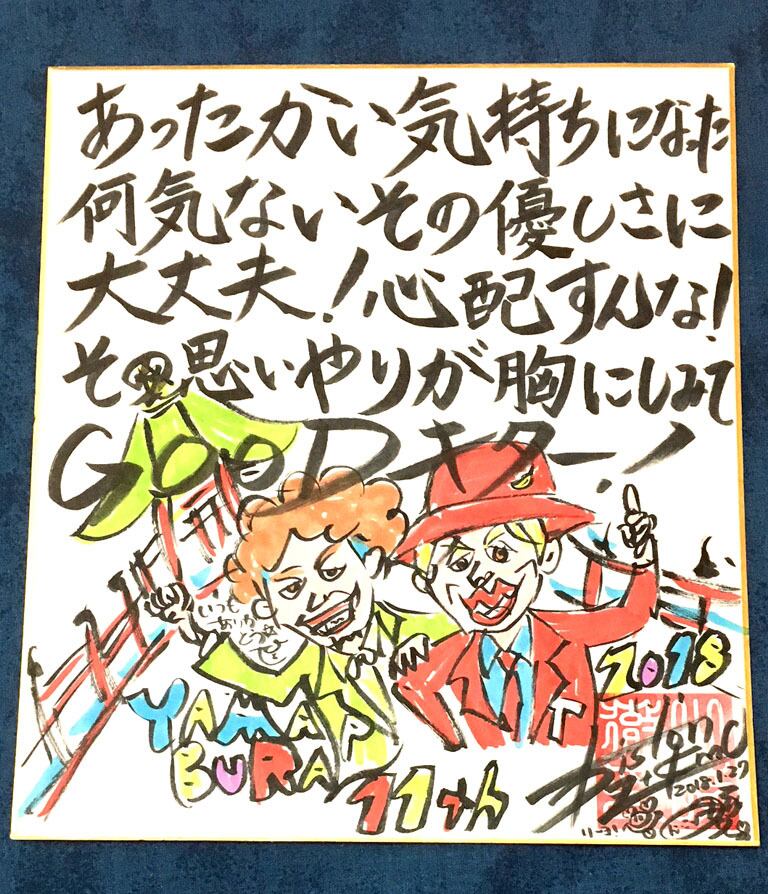 あったかい気持ちになった
何気ないその優しさに
大丈夫!心配すんな!
その思いやりが胸にしみて
GOODキター!
いつも
ありが
とうな
YAMAP
BURA
11th
T
2018
2018.1.27